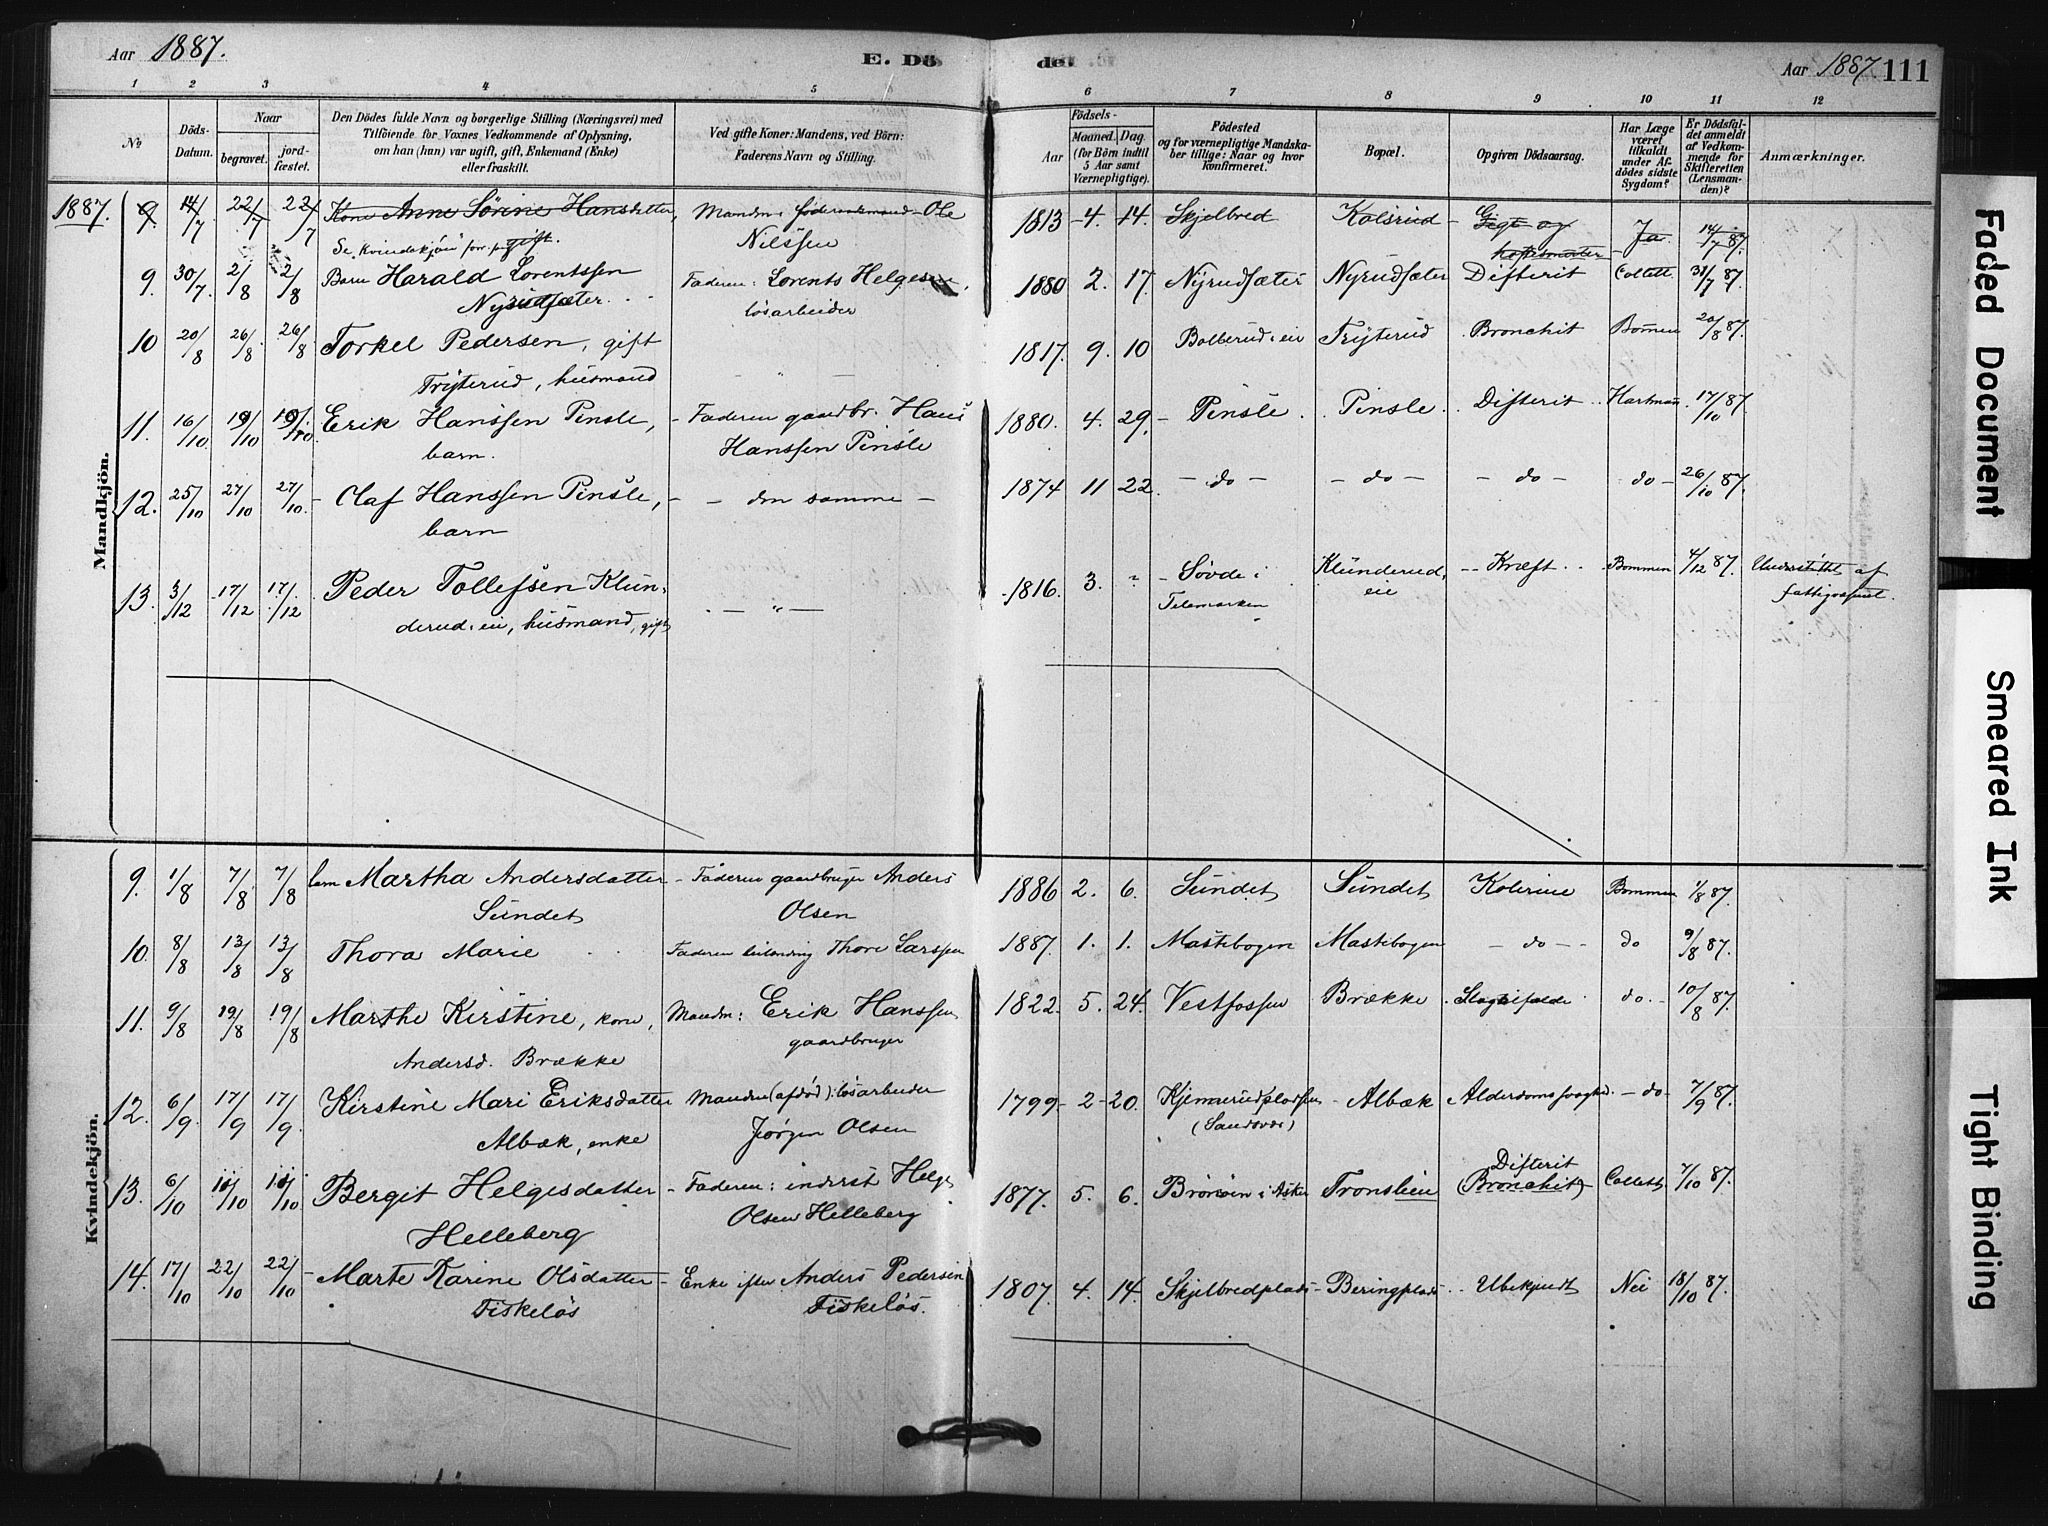 Aar 1887.
E. Dö
det
Aar 1887. 111
1 2 3 4 5 6 7 8 9 10 11 12
No
Döds-Datum.
Naar
begravet.
jord-fæstet.
Den Dödes fulde Navn og borgerlige Stilling (Næringsvei) med
Tilföiende for Voxnes Vedkommende af Oplysning,
om han (hun) var ugift, gift, Enkemand (Enke)
eller fraskilt.
Ved gifte Koner: Mandens, ved Börn:
Faderens Navn og Stilling.
Födsels-
Aar
Maaned. Dag.
(for Börn indtil
5 Aar samt
Værnepligtige).
Födested
og for værnepligtige Mandska-
ber tillige: Naar og hvor
konfirmeret.
Bopæl.
Opgiven Dödsaarsag.
Har Læge
været
tilkaldt
under Af-
dödes sidste
Sygdom?
Er Dödsfal-
det anmeldt
af Vedkom-
mende for
Skifteretten
(Lensman-
den)?
Anmærkninger.
Mandkjön.
1887. 9. 14/7 22/7 22/7 Kone Anne Sörine Hansdatter, Manden: föderaadsmand Ole 1813 4. 14. Skjelbred Kolsrud Gigt og Ja. 14/7 87.
Se "Kvindekjön" forr. pag. gift. Nilssen
9. 30/7 2/8 2/8 Barn Harald Lorentssen Faderen: Lorents Helgesen, 1880 2. 17. Nyrudsæter Nyrudsæter Difterit Collett 31/7 87.
Nyrudsæter lösarbeider
10 20/8 26/8 26/8 Torkel Pedersen, gift — " — 1817. 9. 10 Bollerud-eie Tryterud Bronchit Bommen 20/8 87.
Tryterud, husmand
11. 16/10 19/10 19/10 Erik Hanssen Pinsle, Faderen gaardbr. Hans 1880. 4. 29. Pinsle Pinsle Difterit Hartman 17/10 87.
barn. Hanssen Pinsle
12. 25/10 27/10 27/10 Olaf Hanssen Pinsle, – den samme – 1874 11 22. – do – – do – – do – do – 26/10 87.
barn
13. 3/12 17/12 17/12 Peder Tollefsen Klun- — " — 1816. 3. " Sövde i Klunderud, Kræft Bommen 4/12 87. Understöttet af
derud-eie, husmand, gift Telemarken eie fattigvæsenet.
Kvindekjön.
9. 1/8 7/8 7/8 Martha Andersdatter Faderen gaardbruger Anders 1886 2. 6. Sundet Sundet Kolerine Bommen 1/8 87.
Sundet Olsen
10. 8/8 13/8 13/8 Thora Marie Faderen Thore Larssen 1887. 1. 1. Mastebogen Mastebogen – do – do 9/8 87.
11. 9/8 19/8 19/8 Marthe Kirstine, kone, Manden: Erik Hanssen 1822. 5. 24. Vestfossen Brække Slagtilfælde do. 10/8 87.
Andersd. Brække gaardbruger
12. 6/9 17/9 17/9 Kirstine Mari Eriksdatter Manden (afdöd): lösarbeider 1799 2 20. Albæk Alderdomssvaghed – do 7/9 87.
Albæk, enke Jörgen Olsen (Sandsvær)
13. 6/10 11/10 11/10 Bergit Helgesdatter Faderen: inderst Helge 1877. 5. 6. Brönöen i Asker Tronslien Difterit (Bronchit) Collett 7/10 87.
Helleberg Olsen Helleberg
14. 17/10 22/10 22/10 Marte Karine Olsdatter Enke efter Anders Pedersen 1807. 4. 14. Skjelbredplads Beringplads Ubekjendt Nei 18/10 87.
Fiskelös Fiskelös.
Faded Document
Smeared Ink
Tight Binding